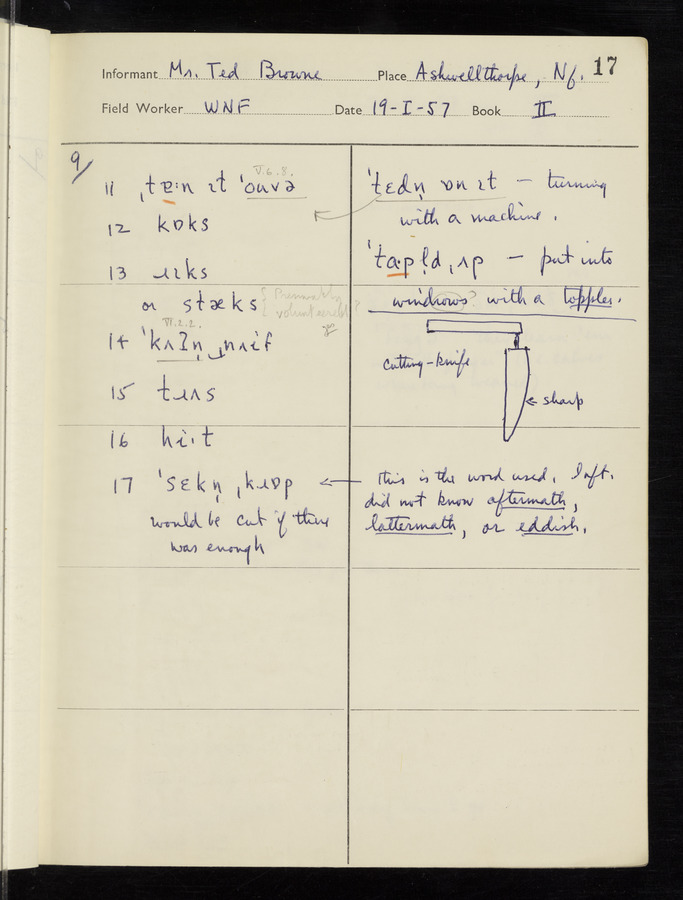 Informant Mr. Ted Browne Place Ashwellthorpe, Nf. 17
Field Worker WNF Date 19-I-57 Book II
9/
V.6.8.
11 ˌtɐ:n ɪt ˈouvə
12 kɒks
13 ɹɪks
or stæks
VI.2.2.
14 naif
15
16 hi·t
17 ˈsɛkn̩ ˌkɹɒp
would be cut if there
was enough
ˈtɛdn̩ ɒn ɪt — turning
with a machine.
ˈtɑ·pl̩d ˌʌp — put into
windrows? with a topples.
cutting-knife
← sharp
← This is the word used. Inft.
did not know aftermath,
lattermath, or eddish.